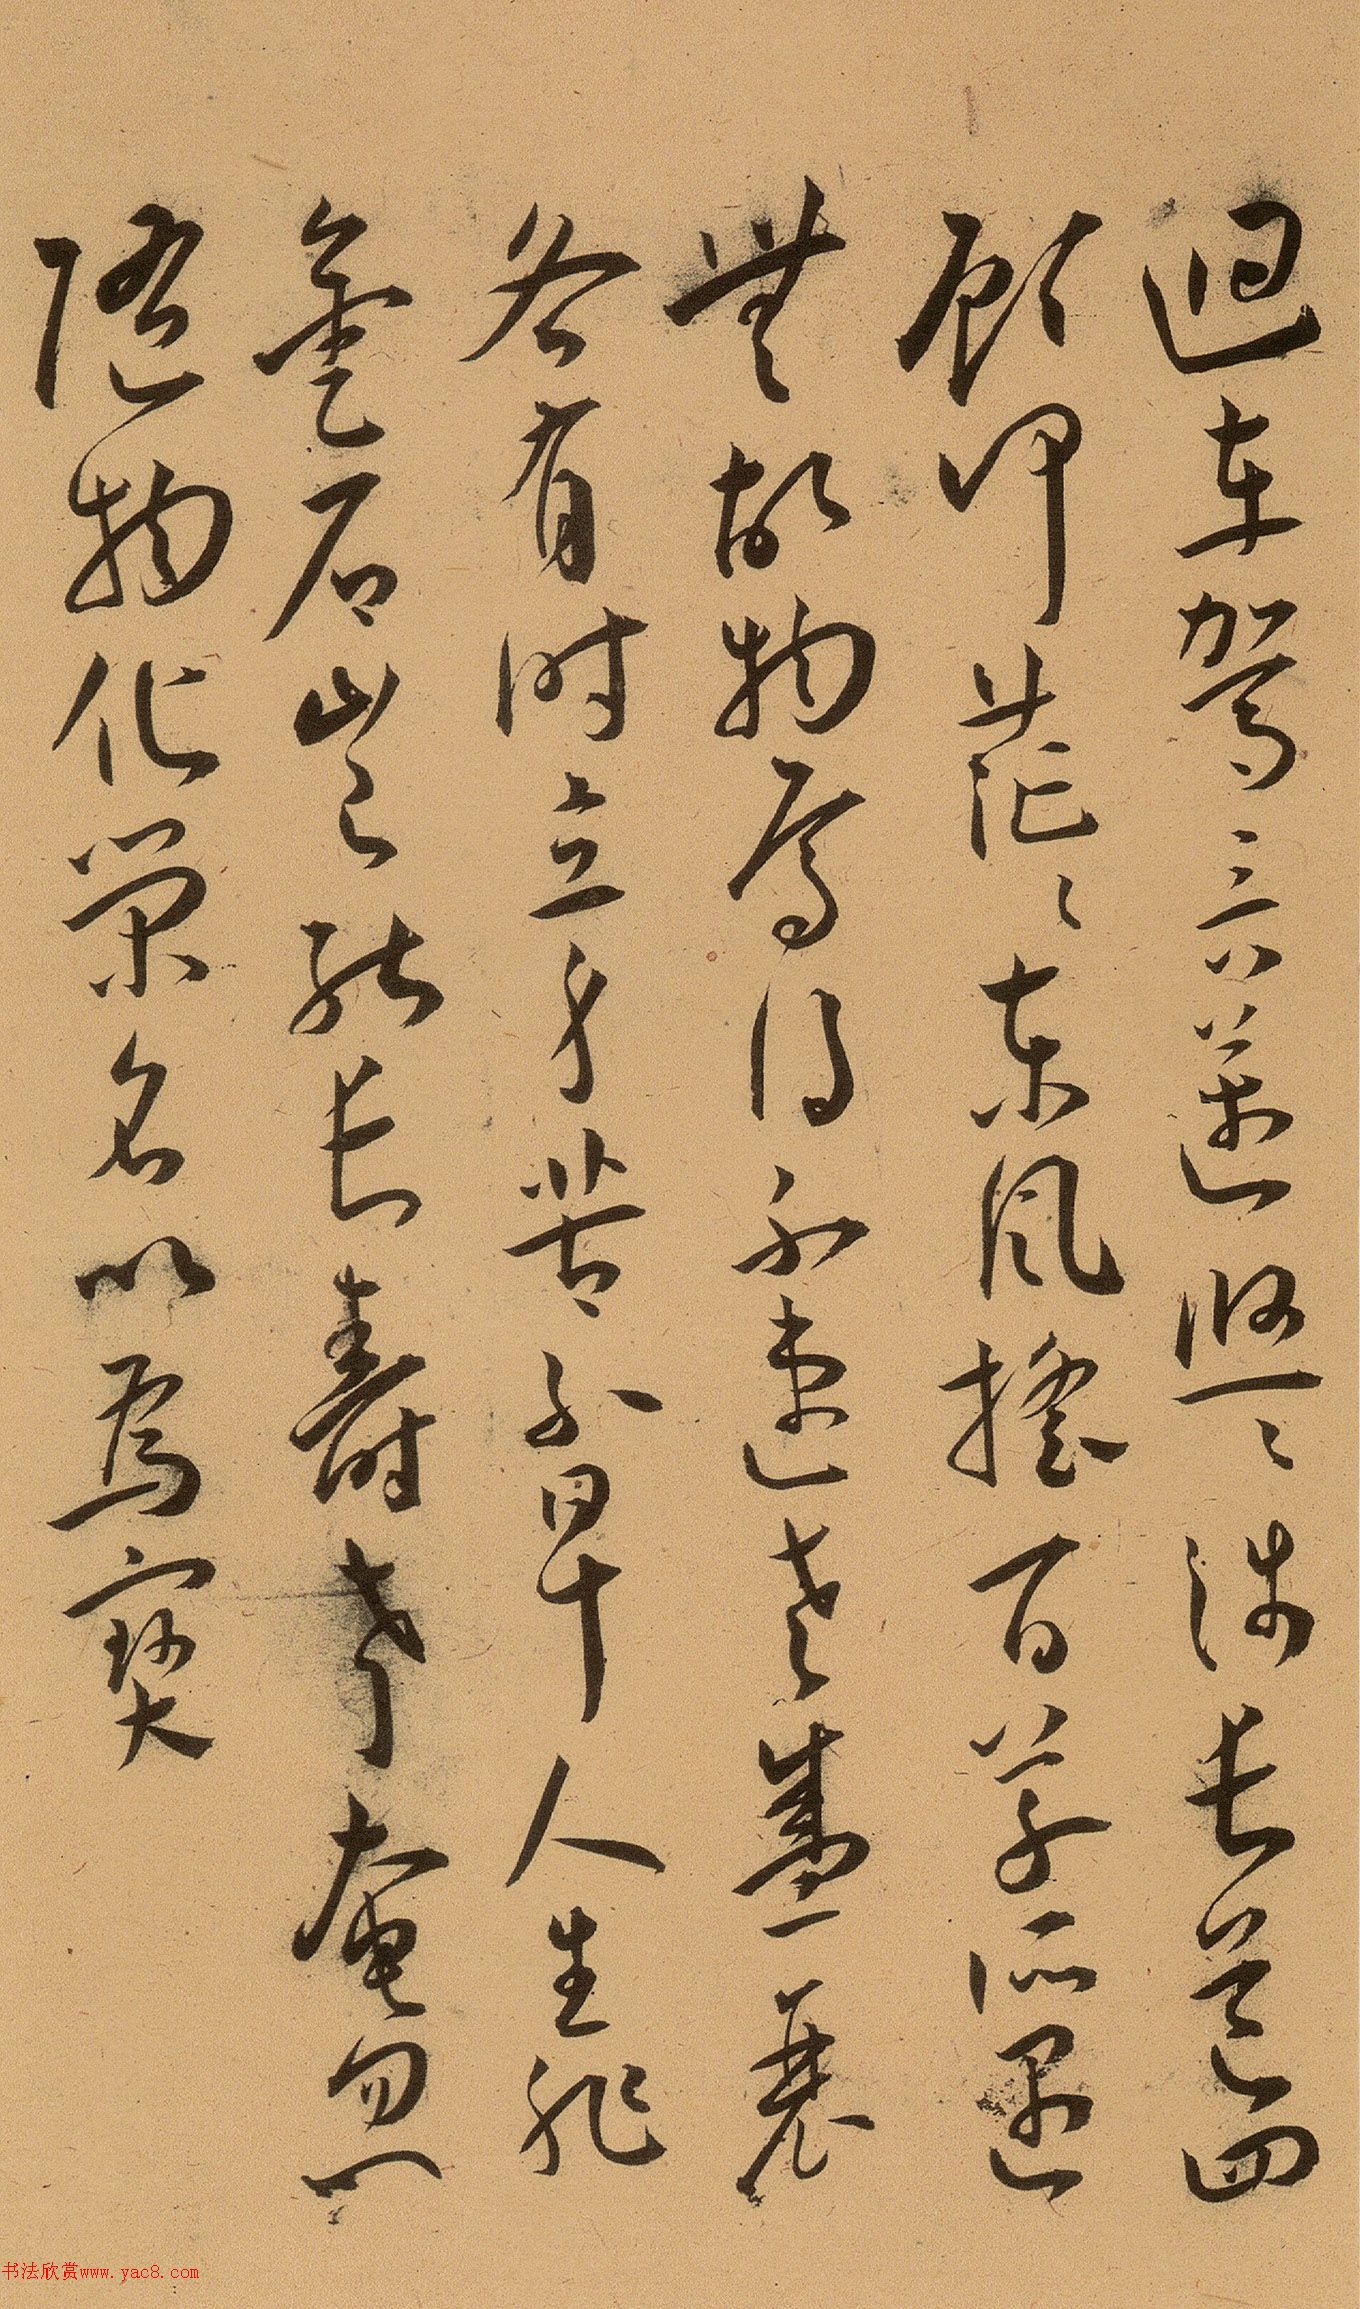 迴車駕言邁悠〻涉長道四
顧何茫〻東風搖百草所遇
無故物焉得不速老盛衰
各有時立身苦不早人生非
金石豈能長壽考奄忽
隨物化榮名以為寶
书法欣赏www.yac8.com